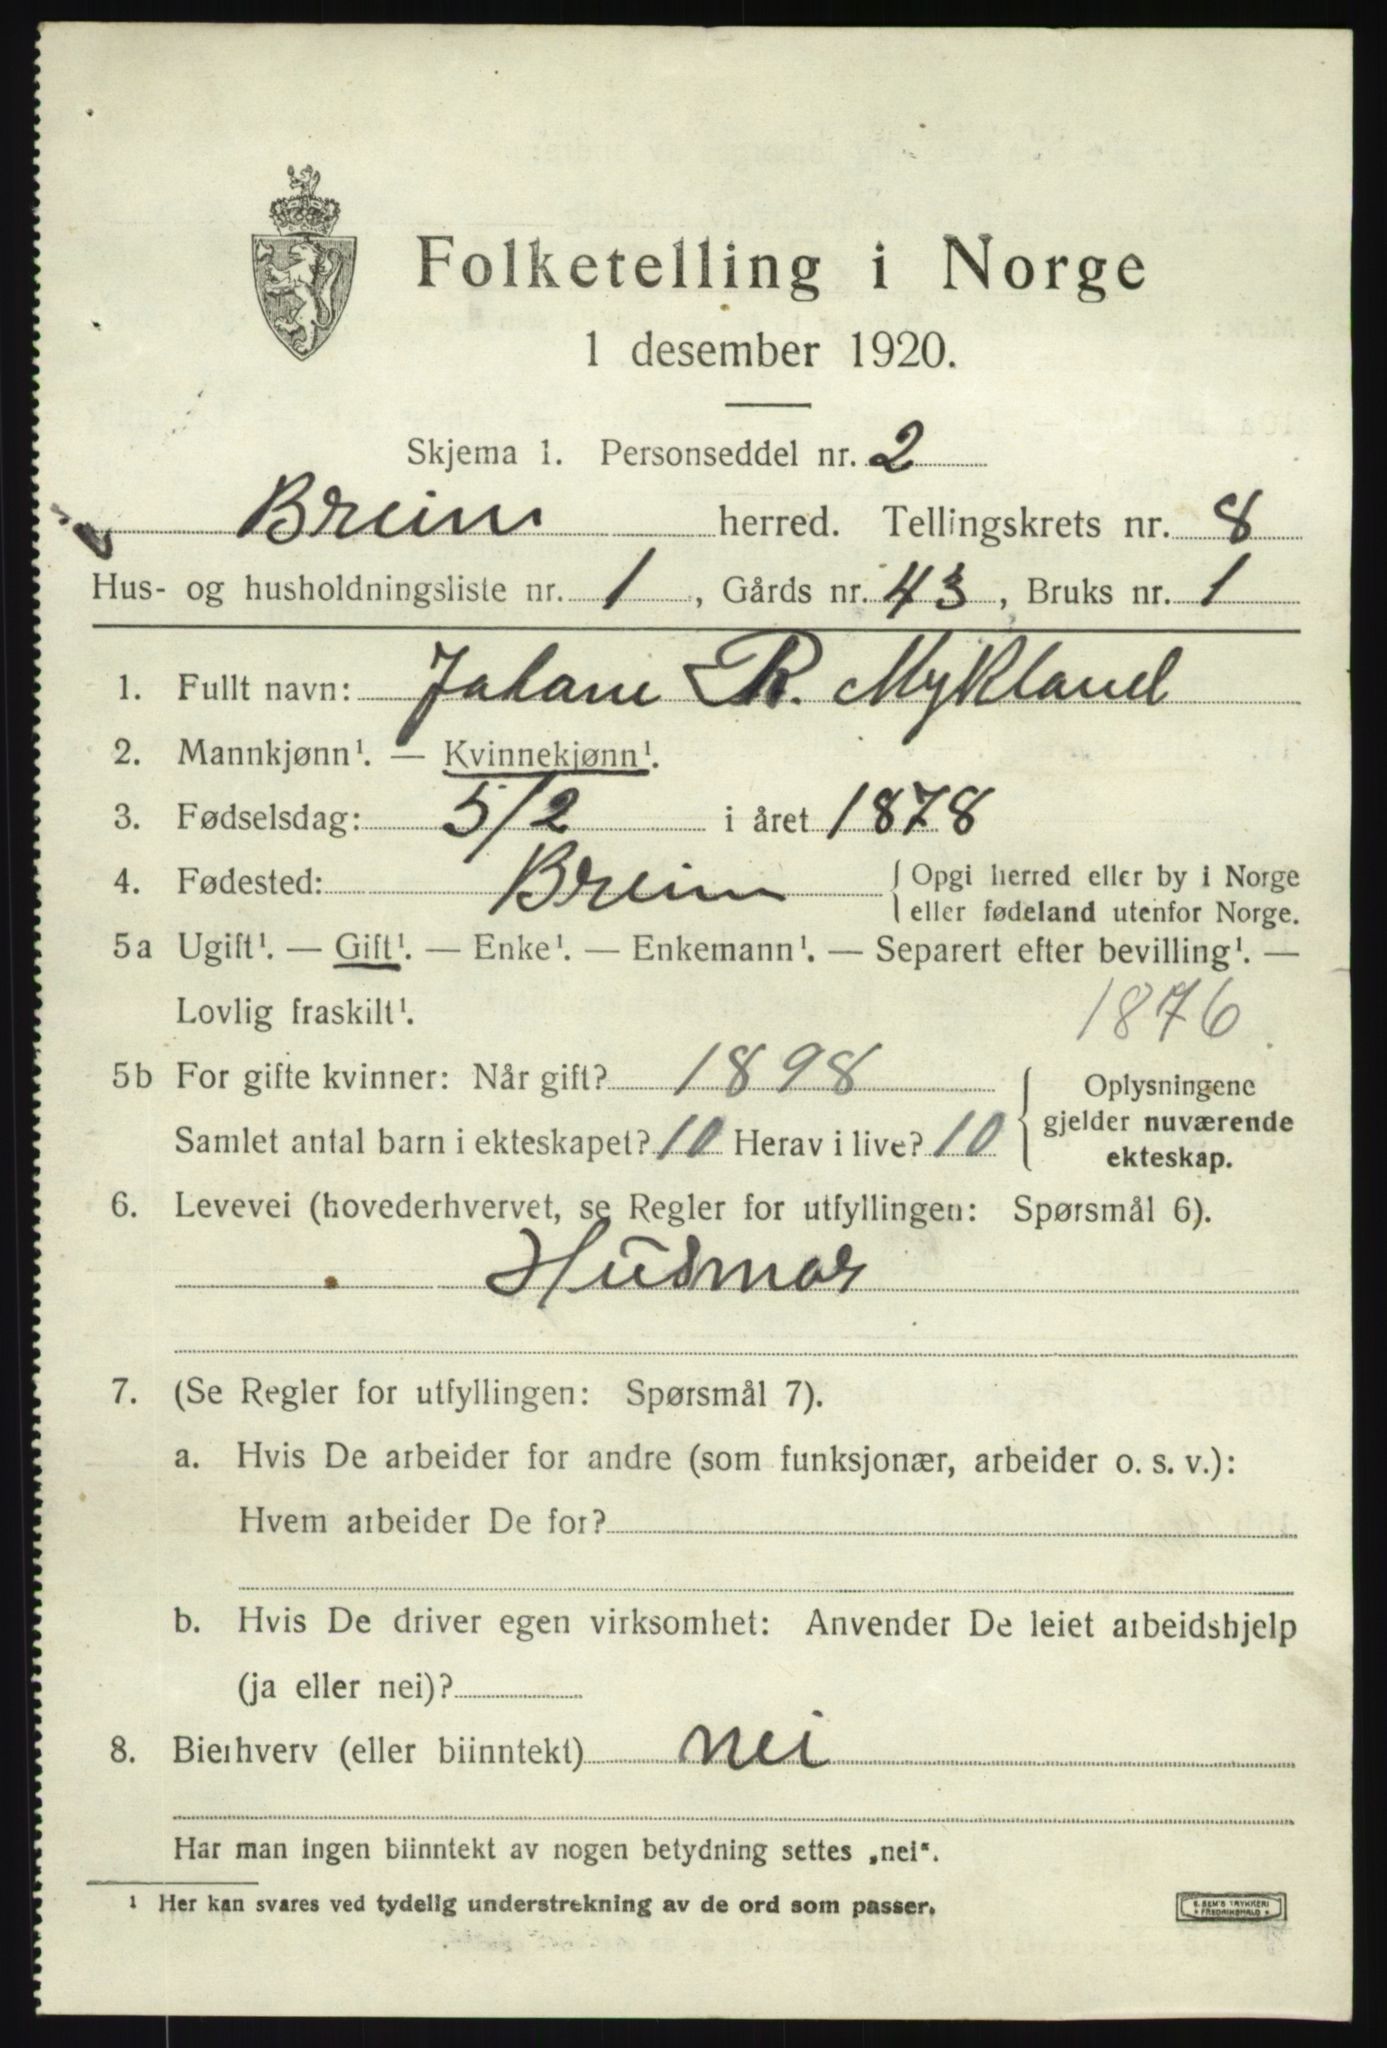 Folketelling i Norge
1 desember 1920.
Skjema 1. Personseddel nr. 2
Breim herred. Tellingskrets nr. 8
Hus- og husholdningsliste nr. 1, Gårds nr. 43, Bruks nr. 1
1. Fullt navn: Johane R. Mykland
2. Mannkjønn¹. — Kvinnekjønn¹.
3. Fødselsdag: 5/2 i året 1878
4. Fødested: Breim { Opgi herred eller by i Norge
eller fødeland utenfor Norge.
5a Ugift¹. — Gift¹. — Enke¹. — Enkemann¹. — Separert efter bevilling¹. —
Lovlig fraskilt¹.
1876
5b For gifte kvinner: Når gift? 1898
Samlet antal barn i ekteskapet? 10 Herav i live? 10
Oplysningene
gjelder nuværende
ekteskap.
6. Levevei (hovederhvervet, se Regler for utfyllingen: Spørsmål 6).
Husmor
7. (Se Regler for utfyllingen: Spørsmål 7).
a. Hvis De arbeider for andre (som funksjonær, arbeider o. s. v.):
Hvem arbeider De for?
b. Hvis De driver egen virksomhet: Anvender De leiet arbeidshjelp
(ja eller nei)?
8. Bierhverv (eller biinntekt) nei
Har man ingen biinntekt av nogen betydning settes „nei“.
¹ Her kan svares ved tydelig understrekning av de ord som passer.
E. SEM'S TRYKKERI
FREDRIKSHALD